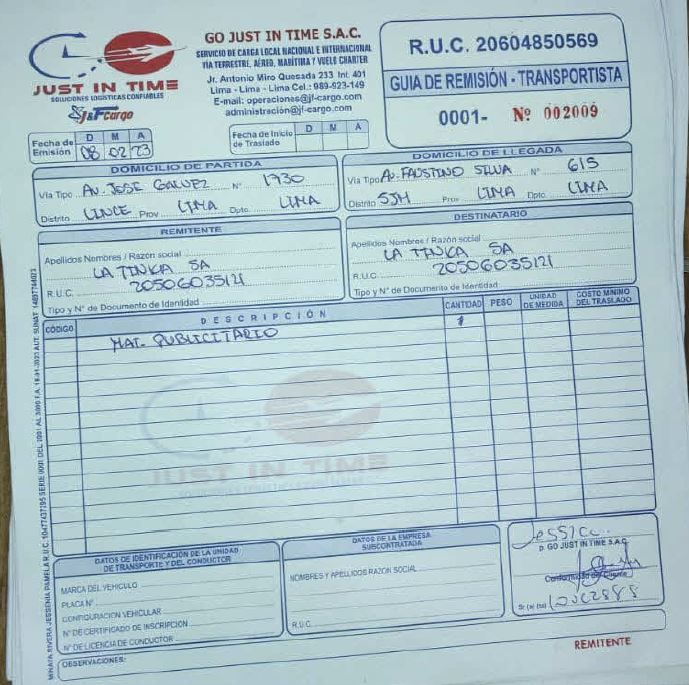 JUST IN TIME
SOLUCIONES LOGISTICAS CONFIABLES
J&F Cargo
GO JUST IN TIME S.A.C.
SERVICIO DE CARGA LOCAL NACIONAL E INTERNACIONAL
VIA TERRESTRE, AÉREO, MARÍTIMA Y VUELO CHARTER
Jr. Antonio Miro Quesada 233 Int. 401
Lima - Lima - Lima Cel.: 989-923-149
E-mail: operaciones@jf-cargo.com
administración@jf-cargo.com
R.U.C. 20604850569
GUIA DE REMISIÓN - TRANSPORTISTA
0001- Nº 002009
Fecha de Emisión D M A
08 02 23
Fecha de Inicio de Traslado D M A
DOMICILIO DE PARTIDA
Vía Tipo AV. JOSE GALVEZ N° 1930
Distrito LINCE Prov. LIMA Dpto. LIMA
DOMICILIO DE LLEGADA
Vía Tipo AV. FAUSTINO SILVA N° 615
Distrito SJM Prov LIMA Dpto. LIMA
REMITENTE
Apellidos Nombres / Razón social
LA TINKA SA
R.U.C. 20506035121
Tipo y N° de Documento de Identidad
DESTINATARIO
Apellidos Nombres / Razón social
LA TINKA SA
R.U.C. 20506035121
Tipo y N° de Documento de Identidad
CÓDIGO DESCRIPCIÓN CANTIDAD PESO UNIDAD DE MEDIDA COSTO MINIMO DEL TRASLADO
MAT. PUBLICITARIO
JUST IN TIME
DATOS DE IDENTIFICACIÓN DE LA UNIDAD DE TRANSPORTE Y DEL CONDUCTOR
MARCA DEL VEHICULO
PLACA N°
CONFIGURACION VEHICULAR
N° DE CERTIFICADO DE INSCRIPCIÓN
N° DE LICENCIA DE CONDUCTOR
DATOS DE LA EMPRESA SUBCONTRATADA
NOMBRES Y APELLIDOS RAZON SOCIAL
R.U.C.
P. GO JUST IN TIME S.A.C.
Conformidad del Cliente
Sr. (a) (ta)
OBSERVACIONES:
REMITENTE